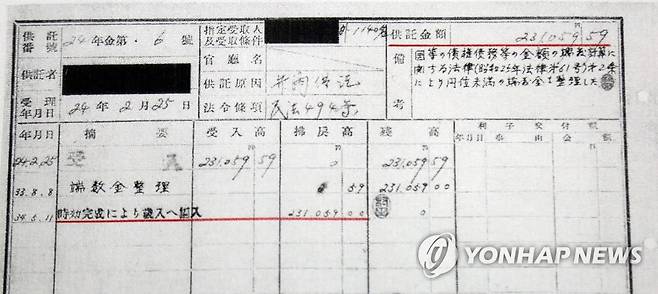 供託番號 24年金第・6號
指定受取人及受取條件 外1140名
供託金額 231,059 59
官廳名
備考
国等の債権債務等の金額の端数計算に
関する法律(昭和25年法律第61号)第2条
により円位未満の端数金を整理した
供託者
供託原因 弁済供託
受理年月日 24年2月25日
法令條項 民法494条
年月日 摘要 受入高 拂戻高 殘高 利子交付額
年月日 事由 金額
24.2.25 受入 231,059 59 0 231,059 59
33.8.8 端数金整理 59 231,059 00
34.5.11 時効完成により歳入へ納入 231,059 00 0
YONHAP NEWS